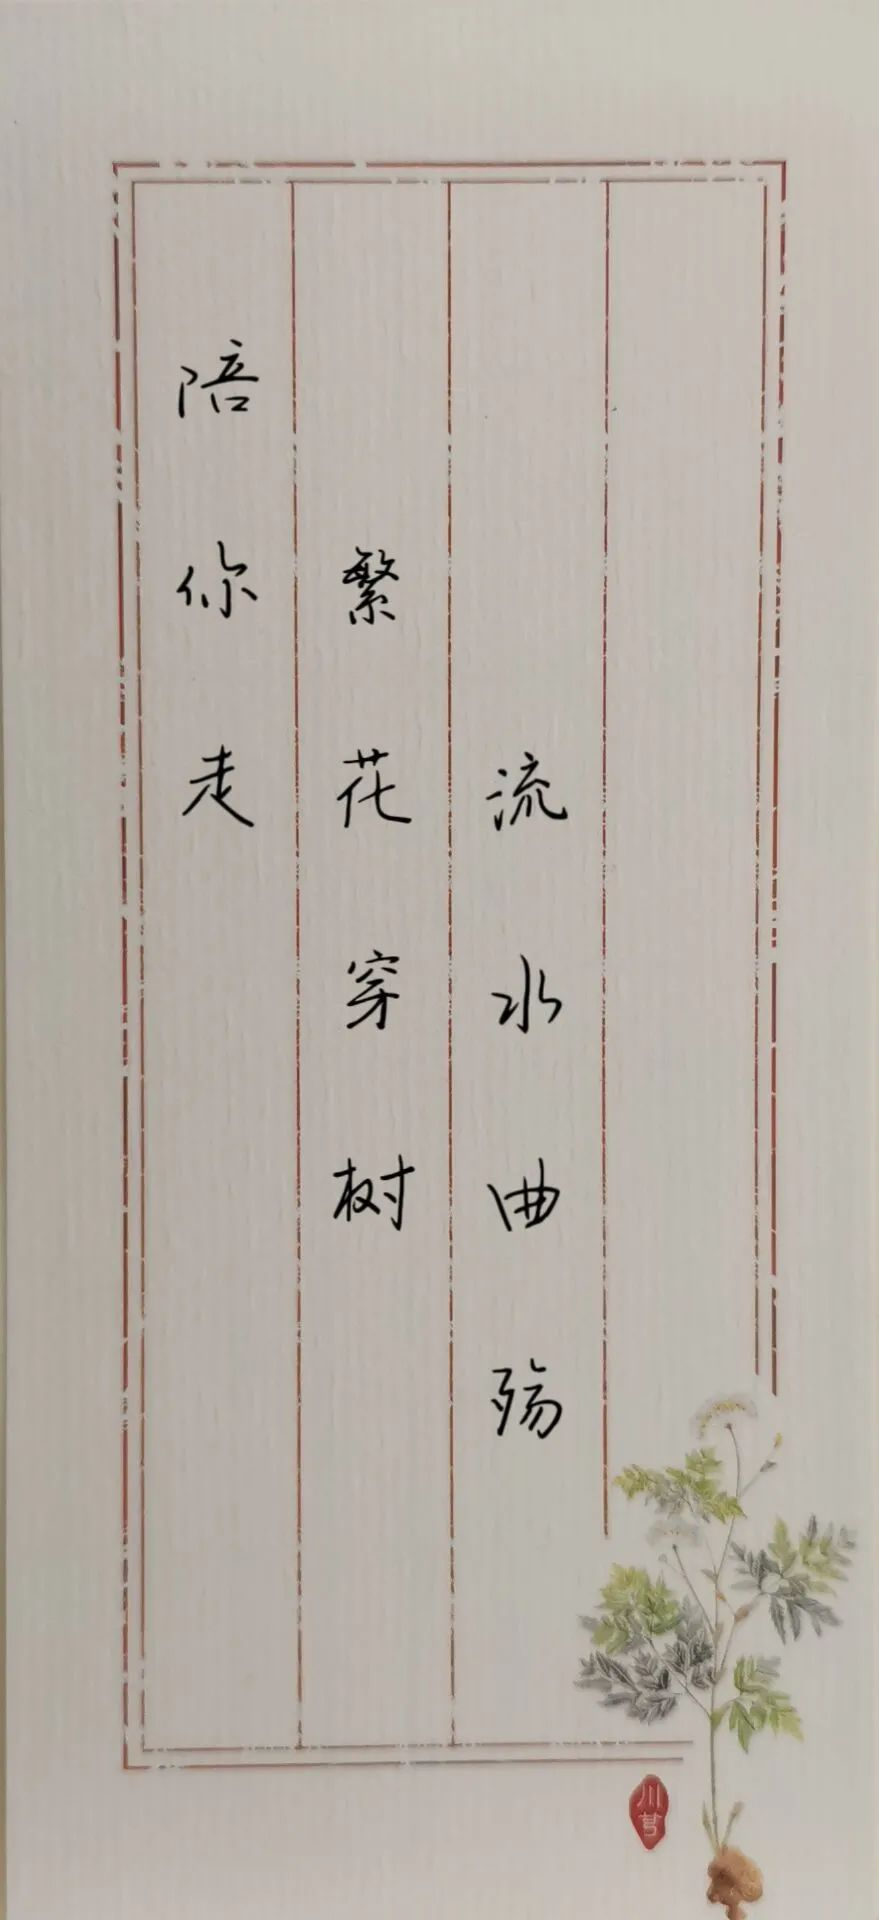 陪你走
繁花穿树
流水曲殇
川芎